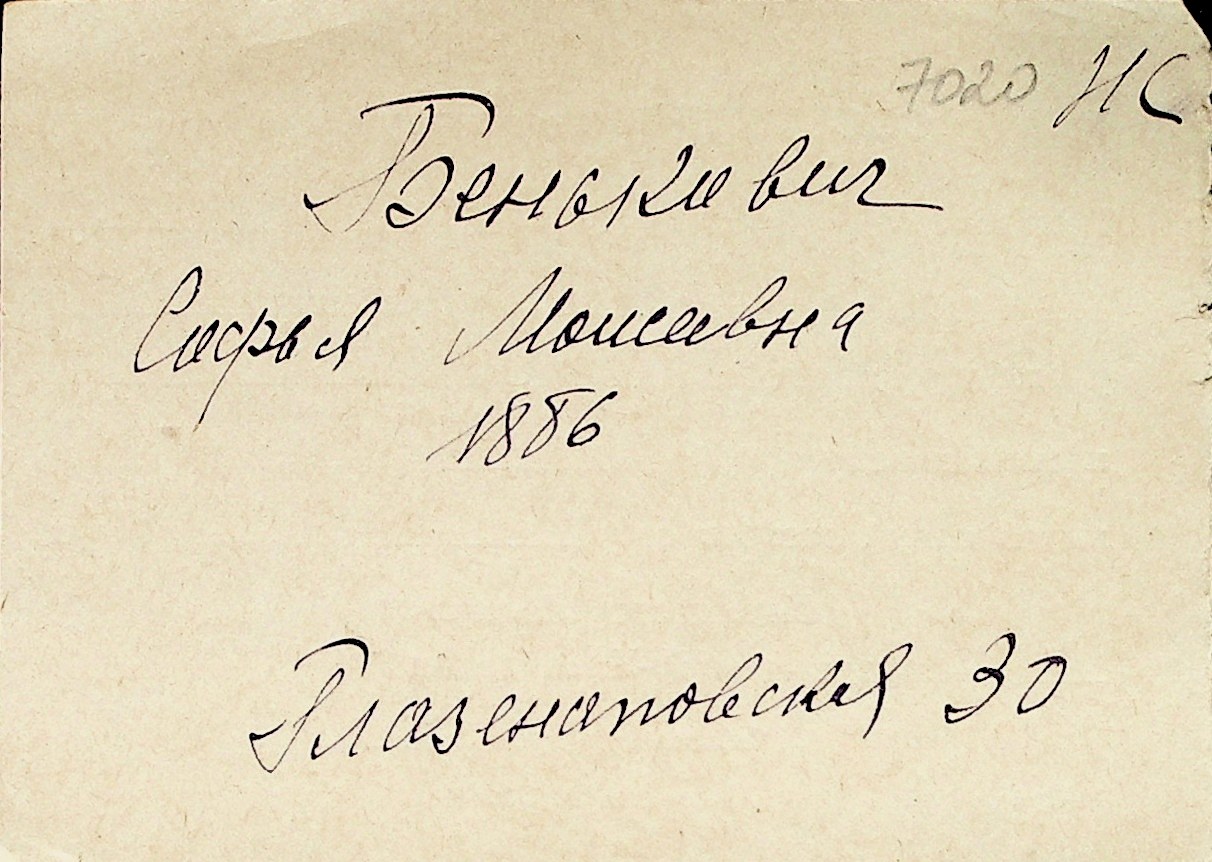 7020 НС
Бенькович
Софья Моисеевна
1886
Глазенаповская 30